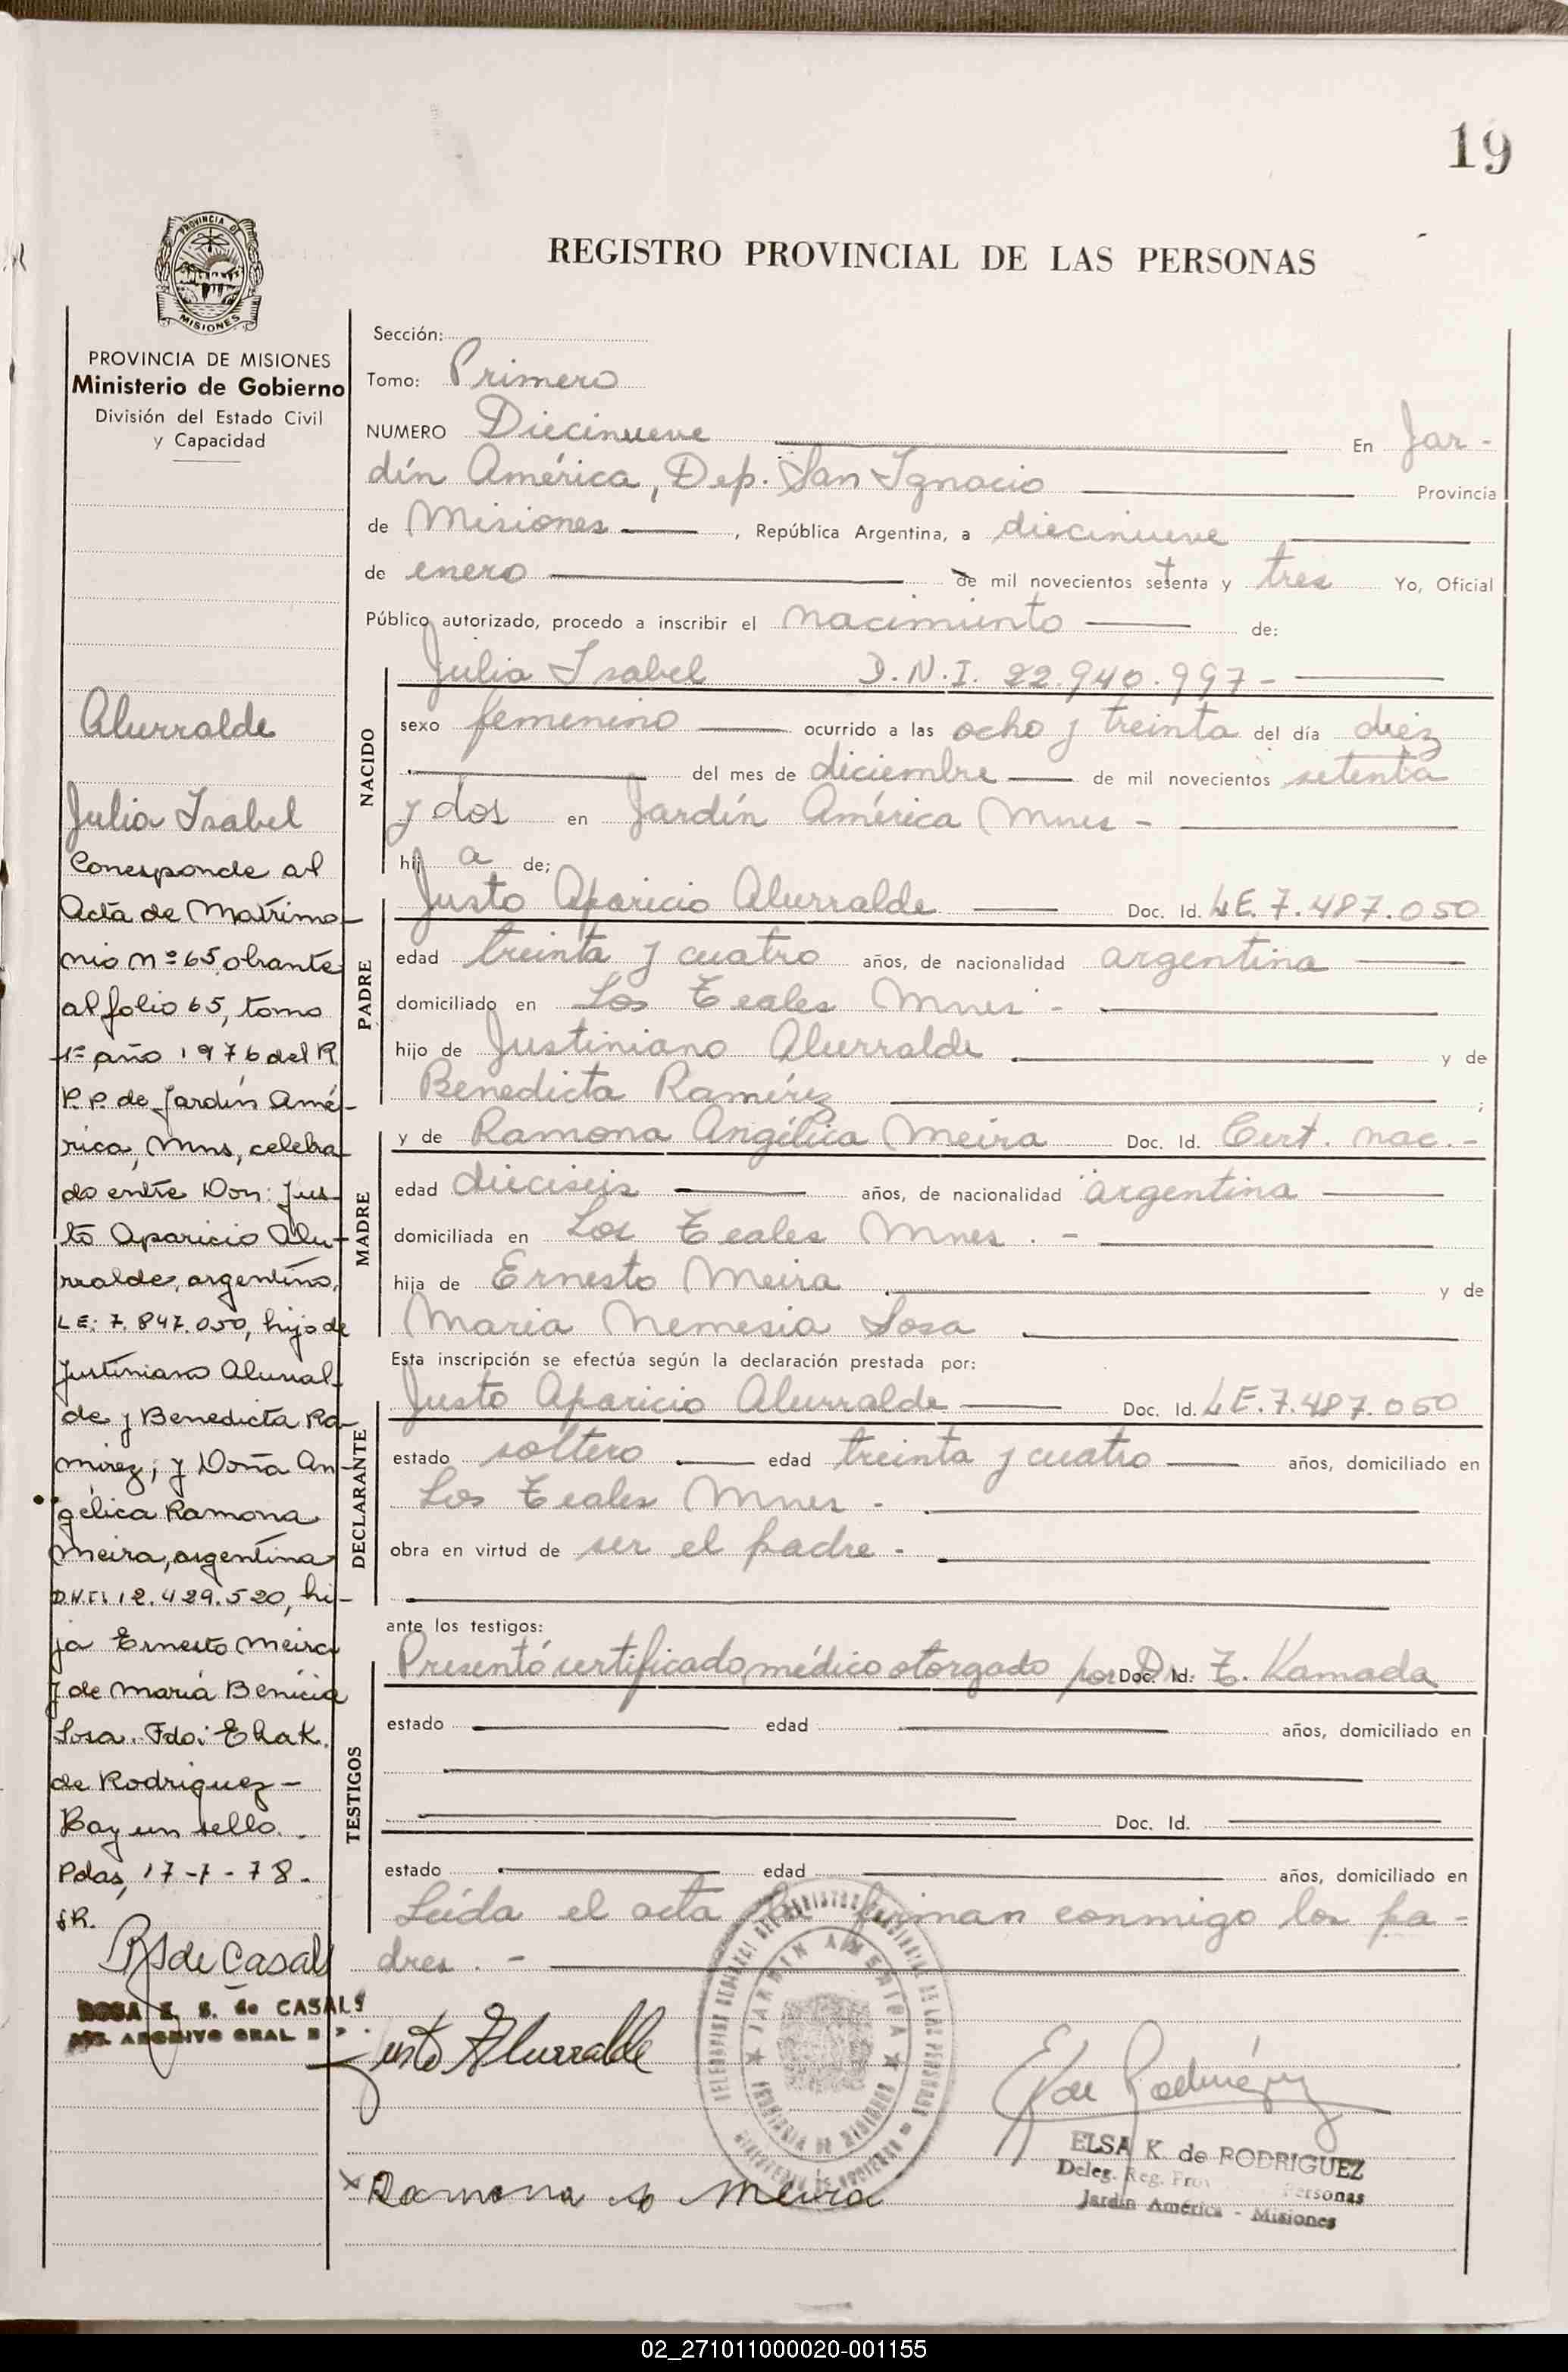 19
PROVINCIA DE
MISIONES
REGISTRO PROVINCIAL DE LAS PERSONAS
PROVINCIA DE MISIONES
Ministerio de Gobierno
División del Estado Civil
y Capacidad
Alurralde
Julia Isabel
Corresponde al
Acta de Matrimo-
nio Nº 65 obrante
al folio 65, tomo
1º año 1976 del R.
P.P. de Jardín Amé-
rica, Mns, celebra-
do entre Don: Jus-
to Aparicio Alu-
rralde, argentino,
LE: 7.847.050, hijo de
Justiniano Alurral-
de y Benedicta Ra-
mirez; y Doña An-
gélica Ramona
Meira, argentina
D.N.I. 12.429.520, hi-
ja Ernesto Meira
y de María Benicia
Sosa. Fdo: Elsa K.
de Rodriguez -
Hay un sello. -
Pdas, 17-7-78.-
SR.
RS de Casals
ROSA E. S. de CASALS
ARCHIVO GRAL
Sección:
Tomo: Primero
NUMERO Diecinueve En Jar-
dín América, Dep. San Ignacio Provincia
de Misiones, República Argentina, a diecinueve
de enero de mil novecientos setenta y tres Yo, Oficial
Público autorizado, procedo a inscribir el nacimiento de:
NACIDO
Julia Isabel D.N.I. 22.940.997-
sexo femenino ocurrido a las ocho y treinta del día diez
del mes de diciembre de mil novecientos setenta
y dos en Jardín América Mnes -
hij a de;
PADRE
Justo Aparicio Alurralde Doc. Id. LE. 7.487.050
edad treinta y cuatro años, de nacionalidad argentina
domiciliado en Los Teales Mnes -
hijo de Justiniano Alurralde y de
Benedicta Ramírez ;
MADRE
y de Ramona Angélica Meira Doc. Id. Cert. nac.-
edad dieciseis años, de nacionalidad argentina
domiciliada en Los Teales Mnes. -
hija de Ernesto Meira y de
Maria Nemesia Sosa
Esta inscripción se efectúa según la declaración prestada por:
DECLARANTE
Justo Aparicio Alurralde Doc. Id. LE. 7.487.050
estado soltero edad treinta y cuatro años, domiciliado en
Los Teales Mnes -
obra en virtud de ser el padre -
ante los testigos:
TESTIGOS
Presentó certificado médico otorgado por Doc. Id. Dr. T. Kamada
estado edad años, domiciliado en
Doc. Id.
estado edad años, domiciliado en
Leída el acta la firman conmigo los pa-
dres. -
Justo Alurralde
JARDIN AMERICA
PROVINCIA DE MISIONES
MINISTERIO DE GOBIERNO
E K de Rodriguez
ELSA K. de RODRIGUEZ
Deleg. Reg. Prov Personas
Jardín América - Misiones
Ramona A Meira
02_271011000020-001155